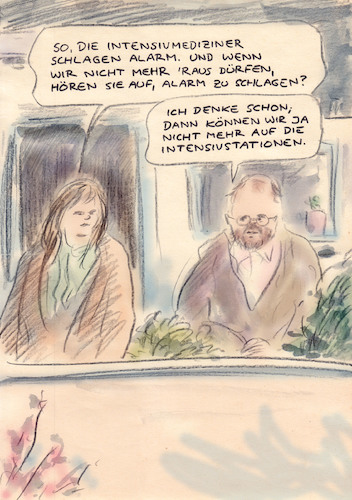 SO, DIE INTENSIVMEDIZINER
SCHLAGEN ALARM. UND WENN
WIR NICHT MEHR 'RAUS DÜRFEN,
HÖREN SIE AUF, ALARM ZU SCHLAGEN?
ICH DENKE SCHON;
DANN KÖNNEN WIR JA
NICHT MEHR AUF DIE
INTENSIVSTATIONEN.